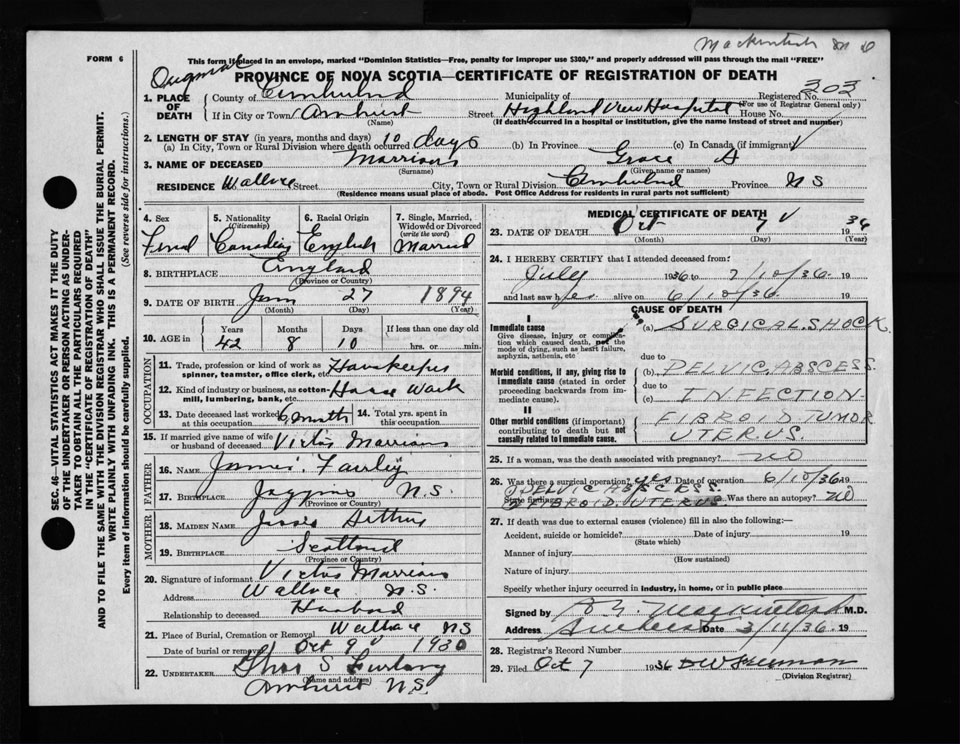 Mackintosh M D
FORM 6
This form if placed in an envelope, marked "Dominion Statistics—Free, penalty for improper use $300," and properly addressed will pass through the mail "FREE"
PROVINCE OF NOVA SCOTIA—CERTIFICATE OF REGISTRATION OF DEATH
1. PLACE OF DEATH
County of Cumberland Municipality of Registered No. 303
(For use of Registrar General only)
If in City or Town Amherst Street Highland View Hospital House No.
(Name) (If death occurred in a hospital or institution, give the name instead of street and number)
2. LENGTH OF STAY (in years, months and days)
(a) In City, Town or Rural Division where death occurred 10 days (b) In Province (c) In Canada (if immigrant)
3. NAME OF DECEASED Grace
(Surname) (Given name or names)
RESIDENCE Wallace Street City, Town or Rural Division Cumberland Province N S
(Residence means usual place of abode. Post Office Address for residents in rural parts not sufficient)
4. Sex 5. Nationality (Citizenship) 6. Racial Origin 7. Single, Married, Widowed or Divorced (write the word)
Canadian English Married
8. BIRTHPLACE England
(Province or Country)
9. DATE OF BIRTH Jan 27 1894
(Month) (Day) (Year)
10. AGE in Years Months Days If less than one day old
42 8 10 hrs. or min.
OCCUPATION
11. Trade, profession or kind of work as spinner, teamster, office clerk, etc. Housekeeper
12. Kind of industry or business, as cotton-mill, lumbering, bank, etc. House Work
13. Date deceased last worked at this occupation 14. Total yrs. spent in this occupation
15. If married give name of wife or husband of deceased Victor
FATHER
16. NAME James
17. Birthplace Joggins N.S.
(Province or Country)
MOTHER
18. MAIDEN NAME
19. BIRTHPLACE Scotland
(Province or Country)
20. Signature of informant Victor
Address Wallace N.S.
Relationship to deceased Husband
21. Place of Burial, Cremation or Removal Wallace NS
Date of burial or removal Oct 9 1936
22. UNDERTAKER Chas S
(Name and address)
Amherst N.S.
MEDICAL CERTIFICATE OF DEATH
23. DATE OF DEATH Oct 7 1936
(Month) (Day) (Year)
24. I HEREBY CERTIFY that I attended deceased from:
July 1936 to 7/10/36 19
and last saw her alive on 6/10/36 19
CAUSE OF DEATH
I
Immediate cause
Give disease, injury or complication which caused death, not the mode of dying, such as heart failure, asphyxia, asthenia, etc
(a) SURGICAL SHOCK
due to
Morbid conditions, if any, giving rise to immediate cause (stated in order proceeding backwards from immediate cause).
(b) PELVIC ABSCESS.
due to
(c) INFECTION
II
Other morbid conditions (if important) contributing to death but not causally related to immediate cause.
FIBROID TUMOR
UTERUS.
25. If a woman, was the death associated with pregnancy? NO
26. Was there a surgical operation? yes Date of operation 6/10/36 19
State findings PELVIC ABSCESS. Was there an autopsy? NO
FIBROID. UTERUS.
27. If death was due to external causes (violence) fill in also the following:—
Accident, suicide or homicide? Date of injury 19
(State which)
Manner of injury
(How sustained)
Nature of injury
Specify whether injury occurred in industry, in home, or in public place
Signed by Mackintosh M.D.
Address Amherst Date 3/11/36. 19
28. Registrar's Record Number
29. Filed Oct 7 1936
(Division Registrar)
SEC. 46—VITAL STATISTICS ACT MAKES IT THE DUTY
OF THE UNDERTAKER OR PERSON ACTING AS UNDER-
TAKER TO OBTAIN ALL THE PARTICULARS REQUIRED
IN THE "CERTIFICATE OF REGISTRATION OF DEATH"
AND TO FILE THE SAME WITH THE DIVISION REGISTRAR WHO SHALL ISSUE THE BURIAL PERMIT.
WRITE PLAINLY WITH UNFADING INK. THIS IS A PERMANENT RECORD.
Every item of information should be carefully supplied. (See reverse side for instructions.)